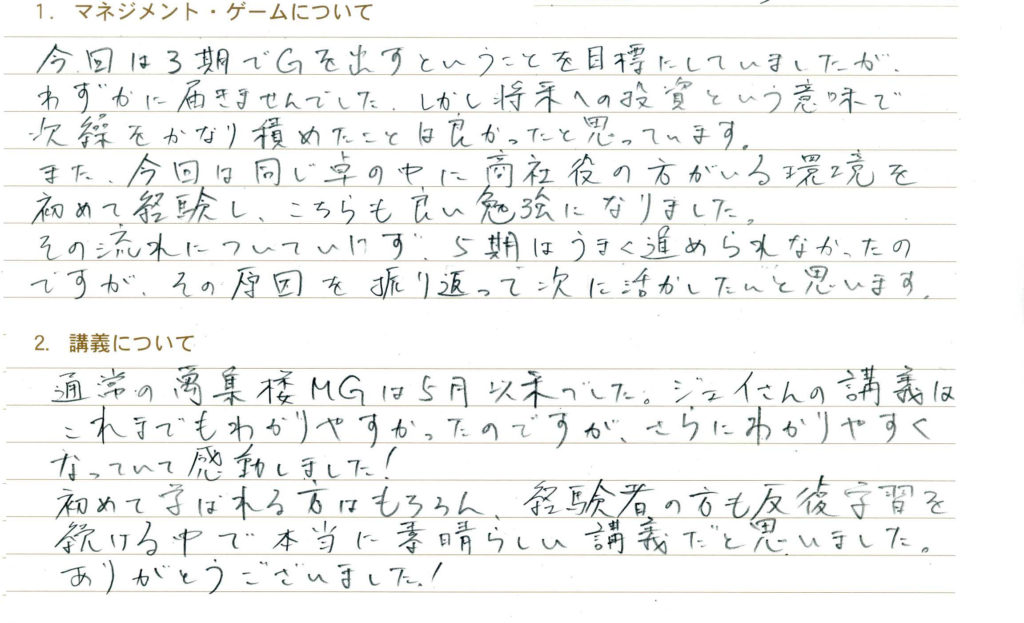 1. マネジメント・ゲームについて
今回は3期でGを出すということを目標にしていましたが、
わずかに届きませんでした。しかし将来への投資という意味で
次繰をかなり積めたことは良かったと思っています。
また、今回は同じ卓の中に商社役の方がいる環境を
初めて経験し、こちらも良い勉強になりました。
その流れについていけず、5期はうまく進められなかったの
ですが、その原因を振り返って次に活かしたいと思います。
2. 講義について
通常の萬集楼MGは5月以来でした。ジェイさんの講義は
これまでもわかりやすかったのですが、さらにわかりやすく
なっていて感動しました!
初めて学ばれる方はもちろん、経験者の方も反復学習を
続ける中で本当に素晴らしい講義だと思いました。
ありがとうございました!